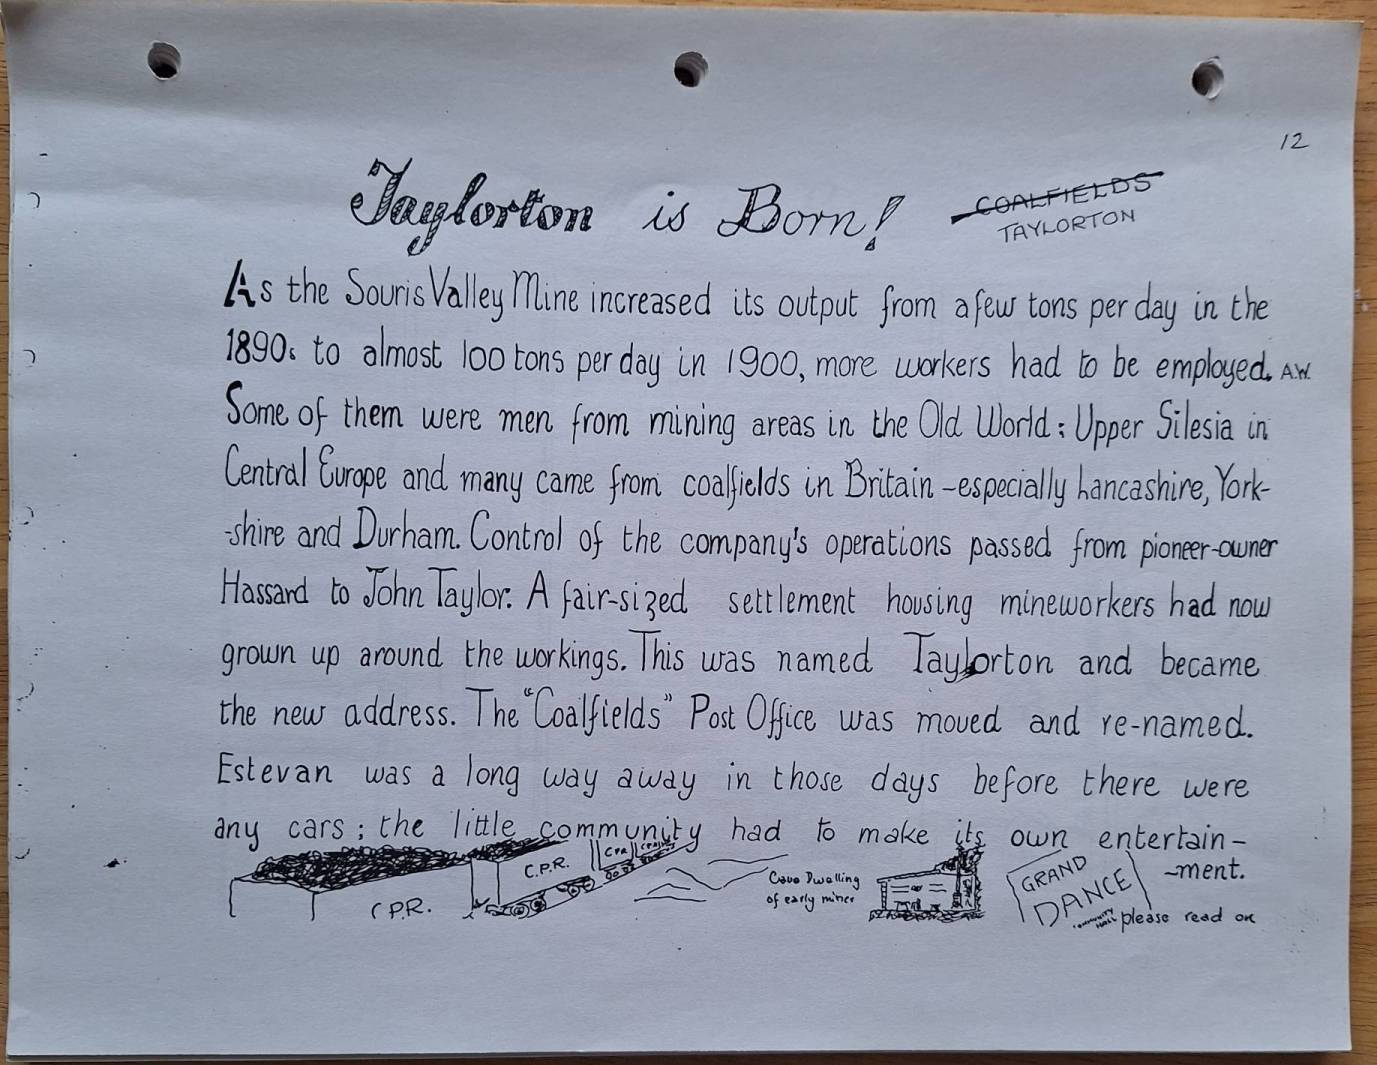 12
Taylorton is Born!
COALFIELDS
TAYLORTON
As the Souris Valley Mine increased its output from a few tons per day in the
1890s to almost 100 tons per day in 1900, more workers had to be employed. A.W.
Some of them were men from mining areas in the Old World: Upper Silesia in
Central Europe and many came from coalfields in Britain - especially Lancashire, York-
-shire and Durham. Control of the company's operations passed from pioneer-owner
Hassard to John Taylor. A fair-sized settlement housing mineworkers had now
grown up around the workings. This was named Taylorton and became
the new address. The "Coalfields" Post Office was moved and re-named.
Estevan was a long way away in those days before there were
any cars; the little community had to make its own entertain-
-ment.
C.P.R.
C.P.R.
CPR
Cave Dwelling
of early miner
GRAND
DANCE
COMMUNITY
HALL
please read on